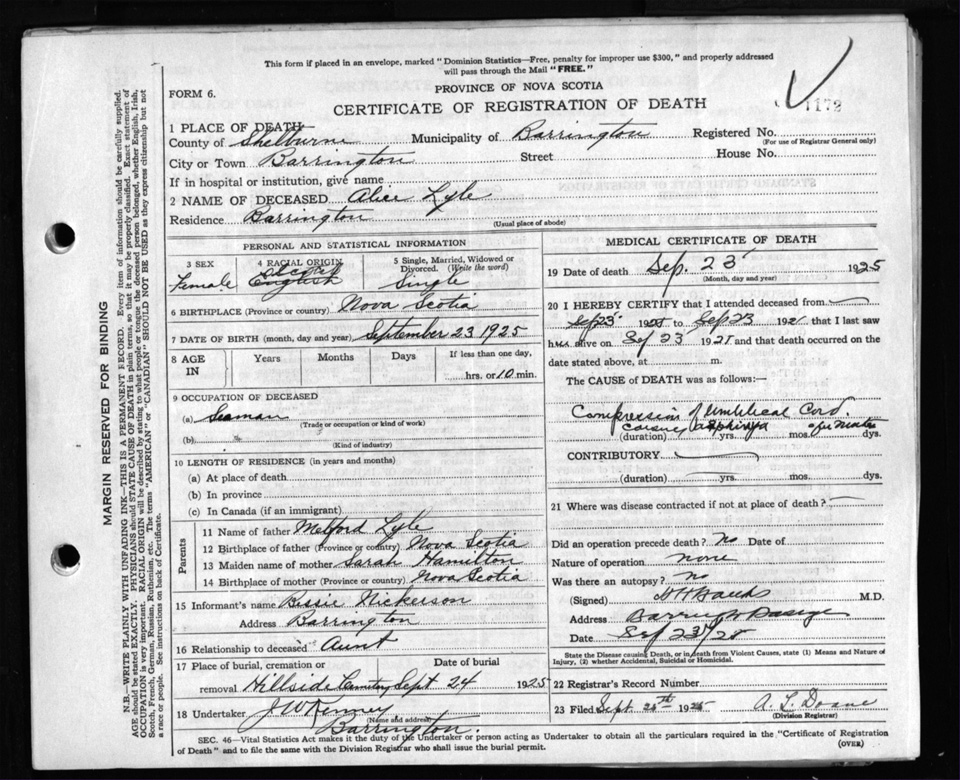 This form if placed in an envelope, marked "Dominion Statistics—Free, penalty for improper use $300," and properly addressed
will pass through the Mail "FREE."
PROVINCE OF NOVA SCOTIA
FORM 6.
CERTIFICATE OF REGISTRATION OF DEATH
1172
1 PLACE OF DEATH
County of Shelburne Municipality of Barrington Registered No.
(For use of Registrar General only)
City or Town Barrington Street House No.
If in hospital or institution, give name
2 NAME OF DECEASED Alice Lyle
Residence Barrington
(Usual place of abode)
PERSONAL AND STATISTICAL INFORMATION
3 SEX 4 RACIAL ORIGIN 5 Single, Married, Widowed or Divorced. (Write the word)
Female English Single
6 BIRTHPLACE (Province or country) Nova Scotia
7 DATE OF BIRTH (month, day and year) September 23 1925
8 AGE IN Years Months Days If less than one day,
hrs. or 10 min.
9 OCCUPATION OF DECEASED
(a) Seaman
(Trade or occupation or kind of work)
(b)
(Kind of industry)
10 LENGTH OF RESIDENCE (in years and months)
(a) At place of death
(b) In province
(c) In Canada (if an immigrant)
Parents
11 Name of father Melford Lyle
12 Birthplace of father (Province or country) Nova Scotia
13 Maiden name of mother Sarah Hamilton
14 Birthplace of mother (Province or country) Nova Scotia
15 Informant's name Bessie Nickerson
Address Barrington
16 Relationship to deceased Aunt
17 Place of burial, cremation or Date of burial
removal Hillside Cemetery Sept 24 1925
18 Undertaker J W Kenney
(Name and address)
Barrington.
MEDICAL CERTIFICATE OF DEATH
19 Date of death Sep. 23 1925
(Month, day and year)
20 I HEREBY CERTIFY that I attended deceased from
Sep 23 1925 to Sep 23 192 that I last saw
h alive on Sep 23 192 and that death occurred on the
date stated above, at m.
The CAUSE OF DEATH was as follows:—
Compression of Umbilical Cord.
(duration) yrs. mos. dys.
CONTRIBUTORY
(duration) yrs. mos. dys.
21 Where was disease contracted if not at place of death?
Did an operation precede death? No Date of
Nature of operation none
Was there an autopsy? No
(Signed) M.D.
Address Barrington Passage
Date Sep 23/25
State the Disease causing Death, or in death from Violent Causes, state (1) Means and Nature of
Injury, (2) whether Accidental, Suicidal or Homicidal.
22 Registrar's Record Number
23 Filed Sept 1925 A. L. Doane
(Division Registrar)
SEC. 46—Vital Statistics Act makes it the duty of the Undertaker or person acting as Undertaker to obtain all the particulars required in the "Certificate of Registration
of Death" and to file the same with the Division Registrar who shall issue the burial permit.
(OVER)
MARGIN RESERVED FOR BINDING
N.B.—WRITE PLAINLY WITH UNFADING INK—THIS IS A PERMANENT RECORD. Every item of information should be carefully supplied.
AGE should be stated EXACTLY. PHYSICIANS should STATE CAUSE OF DEATH in plain terms, so that it may be properly classified. Exact statement of
OCCUPATION is very important. RACIAL ORIGIN will be described by stating to what people or tongue the deceased person belonged, whether English, Irish,
Scotch, French, German, Russian, Ruthenian, etc. The terms "AMERICAN" or "CANADIAN" SHOULD NOT BE USED as they express citizenship but not
a race or people. See instructions on back of Certificate.